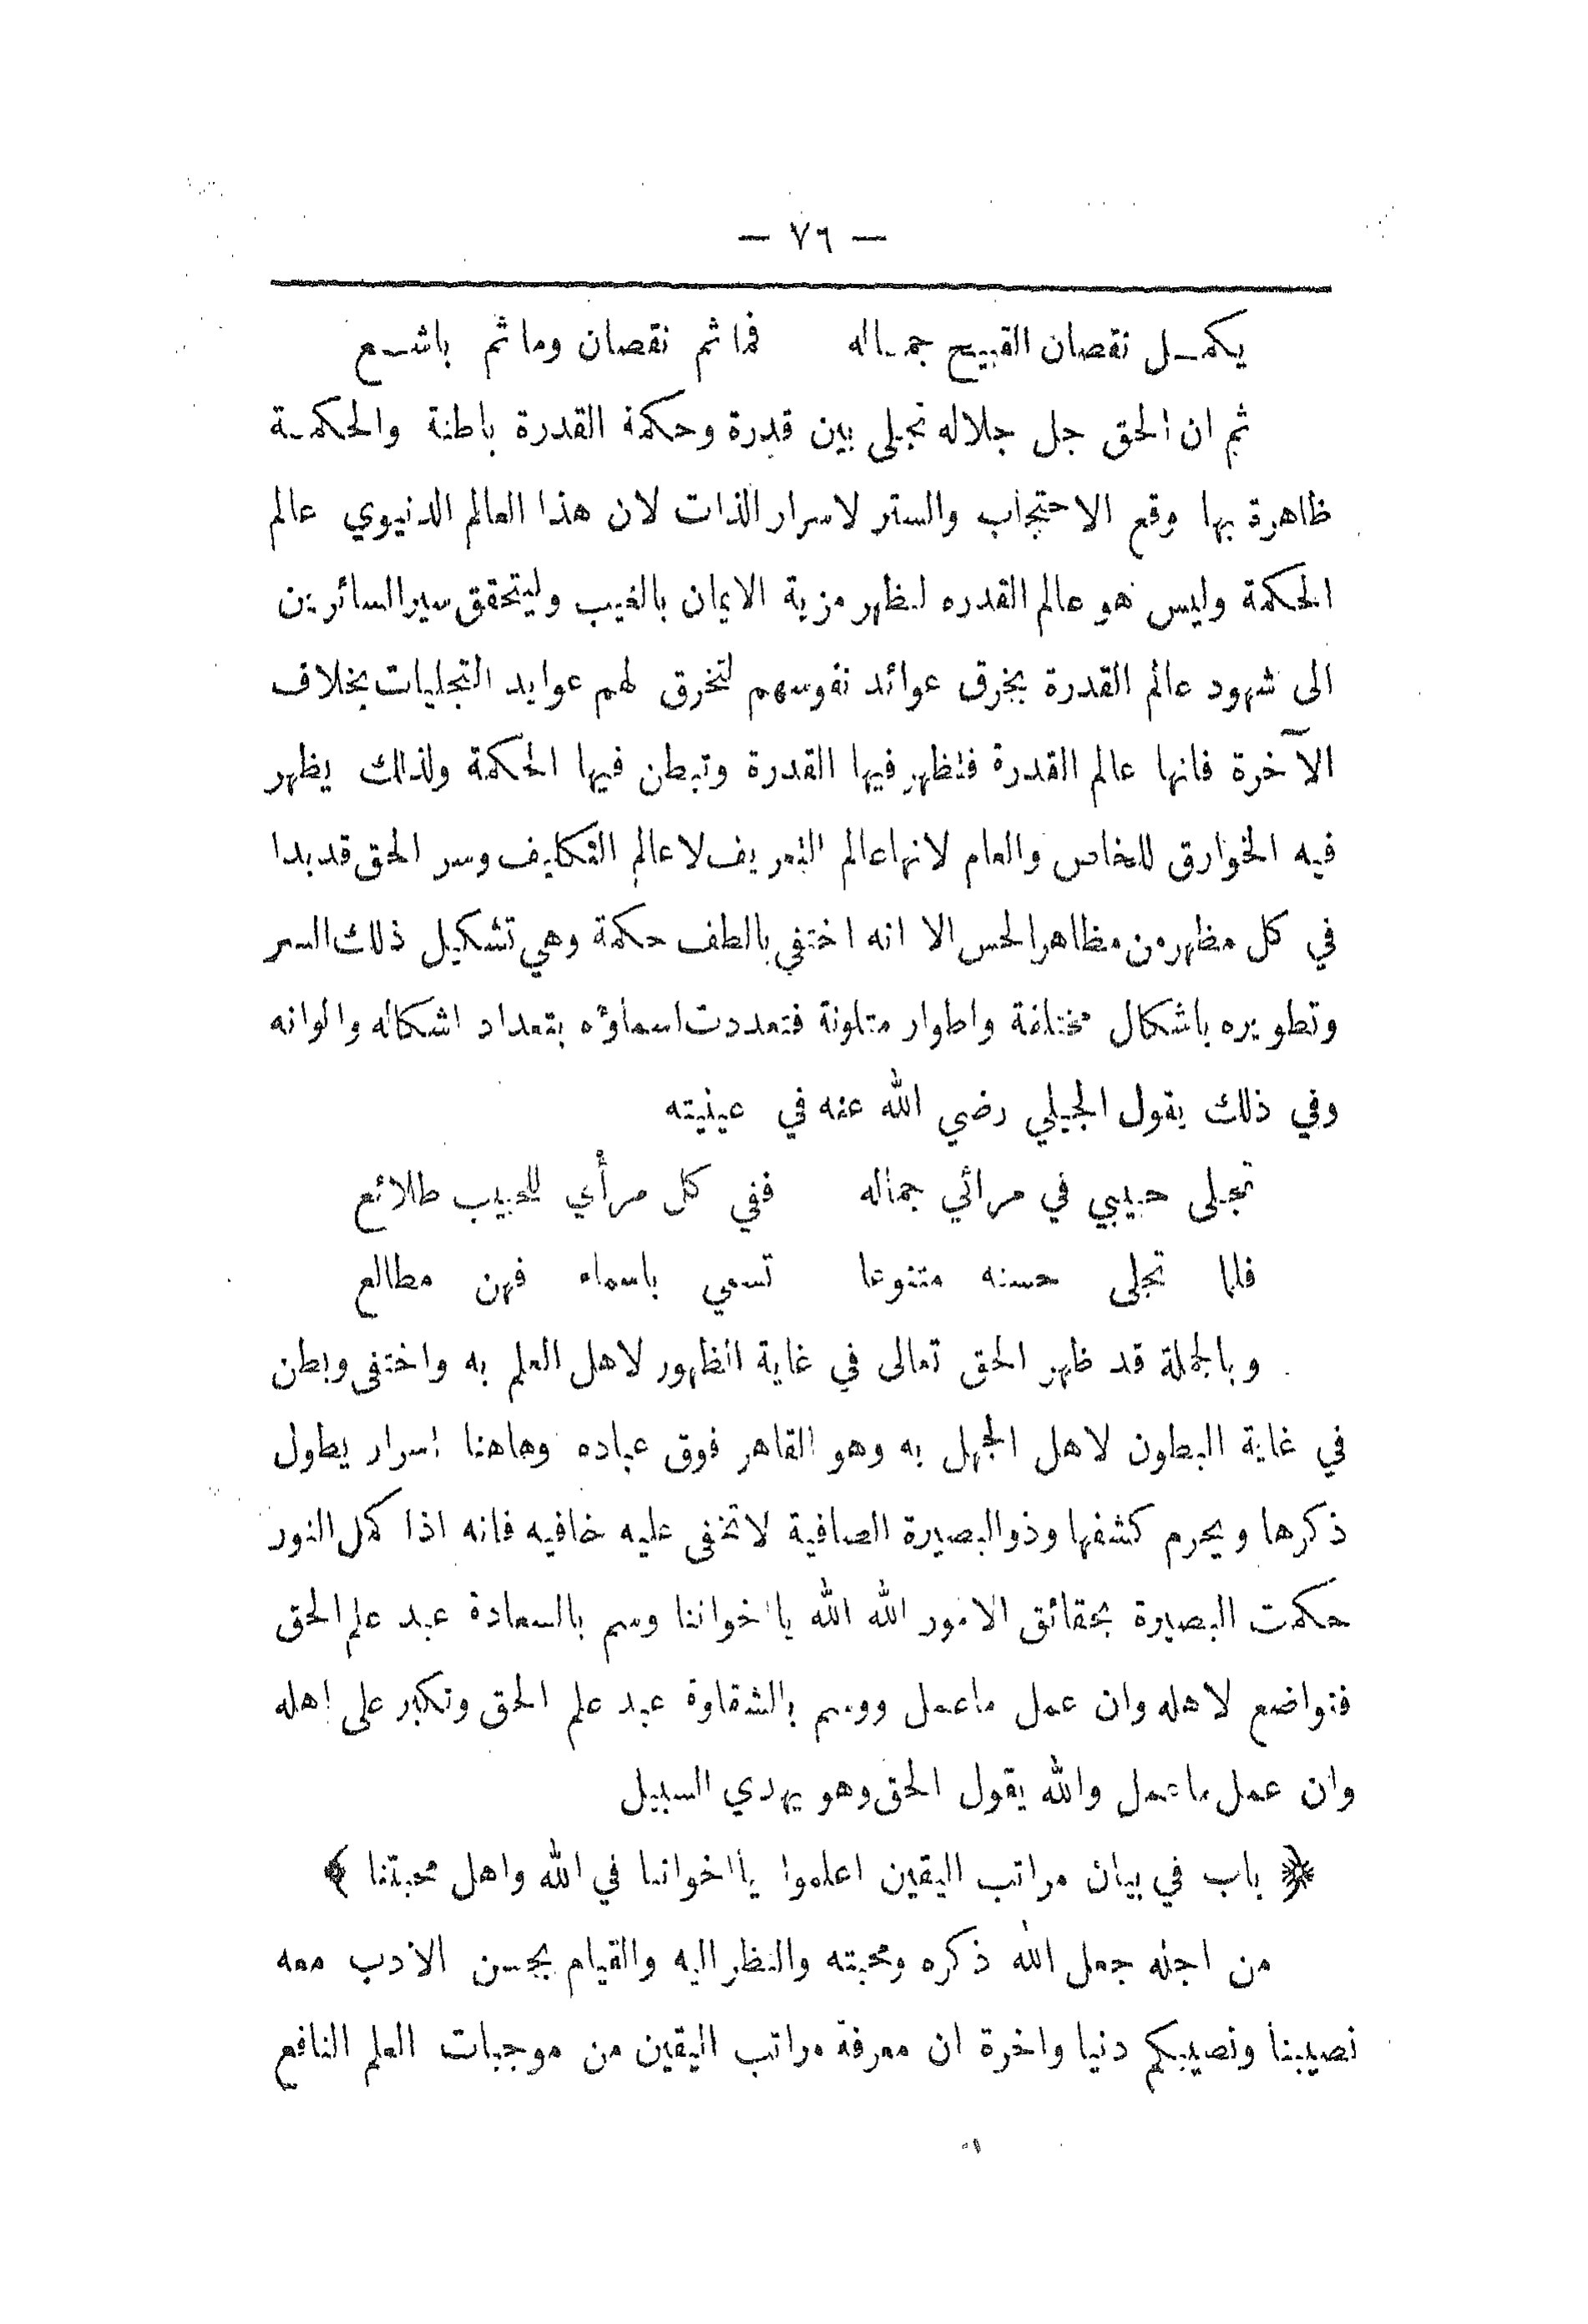 — ٧٦ —
يكمـل نقصان القبيح جمـاله فما ثم نقصان وما ثم باشـع
ثم ان الحق جل جلاله تجلى بين قدرة وحكمة القدرة باطنة والحكمـة
ظاهرة بها وقع الاحتجاب والستر لاسرار الذات لان هذا العالم الدنيوي عالم
الحكمة وليس هو عالم القدره لنظهر مزية الايمان بالغيب وليتحقق سير السائرين
الى شهود عالم القدرة بخرق عوائد نفوسهم لتخرق لهم عوايد التجليات بخلاف
الآخرة فانها عالم القدرة فتظهر فيها القدرة وتبطن فيها الحكمة ولذلك يظهر
فيه الخوارق للخاص والعام لانها عالم التعريف لا عالم التكليف وسر الحق قد بدا
في كل مظهر من مظاهر الحس الا انه اختفي بالطف حكمة وهي تشكيل ذلك السر
وتطويره باشكال مختلفة واطوار متلونة فتعددت اسماؤه بتعداد اشكاله والوانه
وفي ذلك يقول الجيلي رضي الله عنه في عينيته
تجلى حبيبي في مرائي جماله ففي كل مرأي للحبيب طلائع
فلما تجلى حسنه متنوعا تسمي باسماء فهن مطالع
وبالجملة قد ظهر الحق تعالى في غاية الظهور لاهل العلم به واختفى وبطن
في غاية البطون لاهل الجهل به وهو القاهر فوق عباده وهاهنا اسرار يطول
ذكرها ويحرم كشفها وذو البصيرة الصافية لا تخفى عليه خافيه فانه اذا كمل النور
حكمت البصيرة بحقائق الامور الله الله يا اخواننا وسم بالسعادة عبد علم الحق
فتواضع لاهله وان عمل ما عمل ووسم بالشقاوة عبد علم الحق وتكبر على اهله
وان عمل ما عمل والله يقول الحق وهو يهدي السبيل
﴿ باب في بيان مراتب اليقين اعلموا يا اخواننا في الله واهل محبتنا ﴾
من اجله جعل الله ذكره ومحبته والنظر اليه والقيام بحسن الادب معه
نصيبنا ونصيبكم دنيا واخرة ان معرفة مراتب اليقين من موجبات العلم النافع